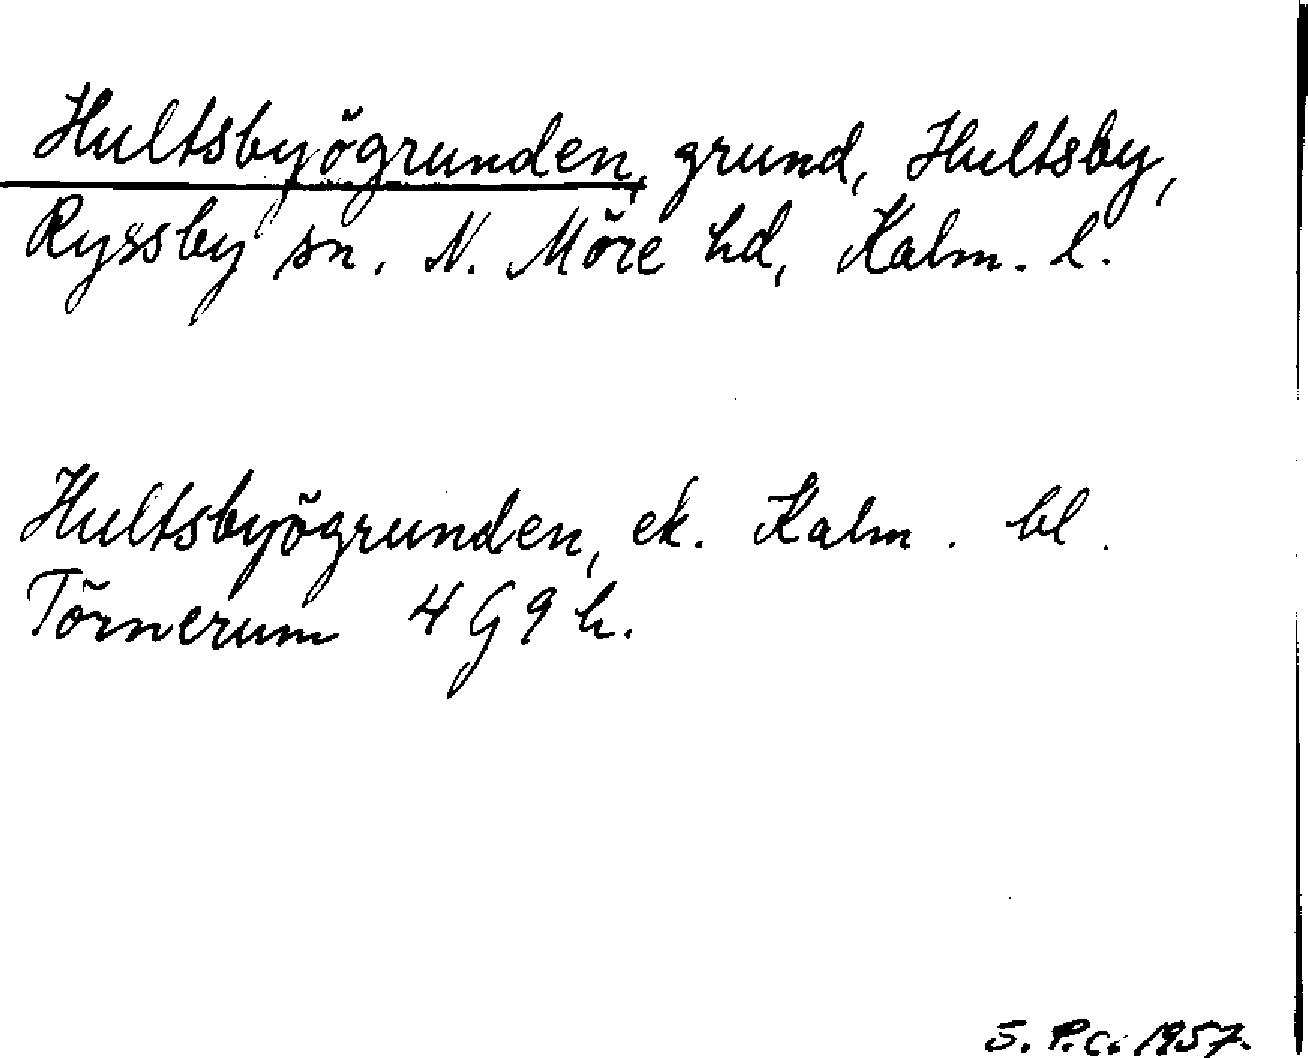 Hultsbyögrunden, grund, Hultsby,
Ryssby sn. N. Möre hd, Kalm. l.
Hultsbyögrunden, ek. Kalm. bl.
Törnerum 4G9h.
S. P.C. 1957.